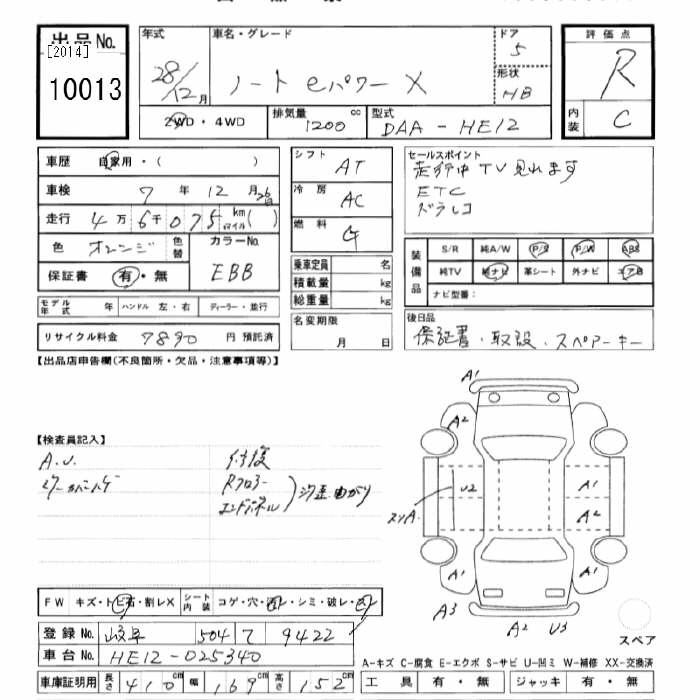 出品No. [2014] 10013
年式 28/12月
車名・グレード ノート eパワー X
ドア 5
形状 HB
評価点 R
内装 C
2WD・4WD
排気量 1200 cc
型式 DAA-HE12
車歴 自家用・( )
車検 7年 12月 26日
走行 4万 6千 075 km マイル( )
色 オレンジ 色替 カラーNo. EBB
保証書 有・無
モデル年式 年 ハンドル 左・右 ディーラー・並行
リサイクル料金 9890 円 預託済
シフト AT
冷房 AC
燃料 G
乗車定員 名
積載量 kg
総重量 kg
名変期限 月 日
セールスポイント
走行中TV見れます
ETC
ドラレコ
装備品 S/R 純A/W P/S P/W ABS
純TV 純ナビ 革シート 外ナビ エアB
ナビ型番:
後日品
保証書・取説・スペアーキー
【出品店申告欄(不良箇所・欠品・注意事項等)】
【検査員記入】
A.U. 修復
Rフロアー
エンドパネル 曲がり
A1
A2
U2
A1
A1
A1
A1
A3
A2 U3
スペア
FW キズ・トビ石・割レX シート内装 コゲ・穴・汚レ・シミ・破レ・
登録No. 岐阜 504 て 9422
車台No. HE12-025340
車庫証明用 長さ 410 cm 幅 169 cm 高さ 152 cm
A-キズ C-腐食 E-エクボ S-サビ U-凹ミ W-補修 XX-交換済
工具 有・無 ジャッキ 有・無